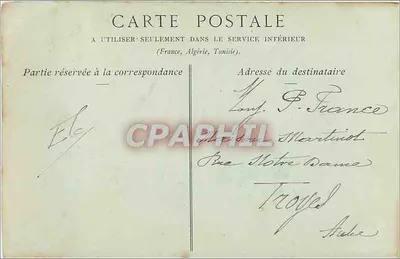 CARTE POSTALE
A UTILISER SEULEMENT DANS LE SERVICE INTÉRIEUR
(France, Algérie, Tunisie).
Partie réservée à la correspondance
Adresse du destinataire
P. France
Martinot
Rue Notre Dame
Troyes
Aube
CPAPHIL